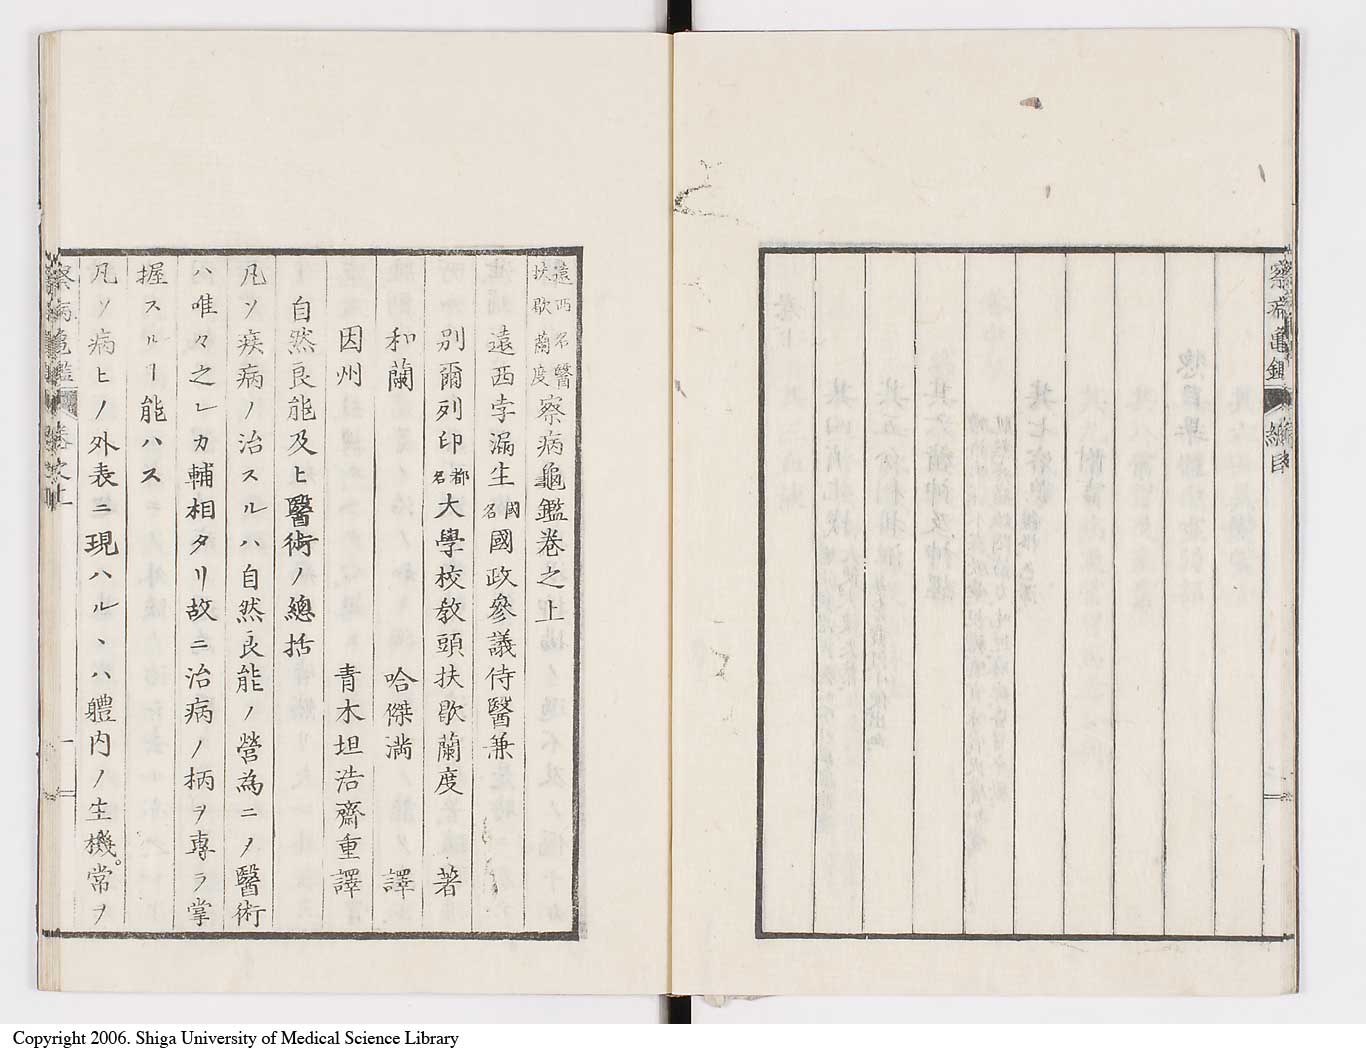 察病亀鑑
總目
二
遠西名醫
扶歇蘭度
察病龜鑑卷之上
遠西孛漏生國名國政參議侍醫兼
別爾列印都名大學校敎頭扶歇蘭度 著
和蘭 哈傑満 譯
因州 青木坦浩齋重譯
自然良能及ヒ醫術ノ總括
凡ソ疾病ノ治スルハ自然良能ノ營為ニノ醫術
ハ唯々之レカ輔相タリ故ニ治病ノ柄ヲ專ラ掌
握スルー能ハス
凡ソ病ヒノ外表ニ現ハル丶ハ體内ノ生機常ヲ
察病亀鑑
卷之上
一
Copyright 2006. Shiga University of Medical Science Library